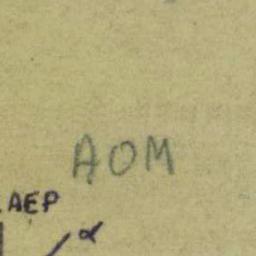 AOM
AEP
α